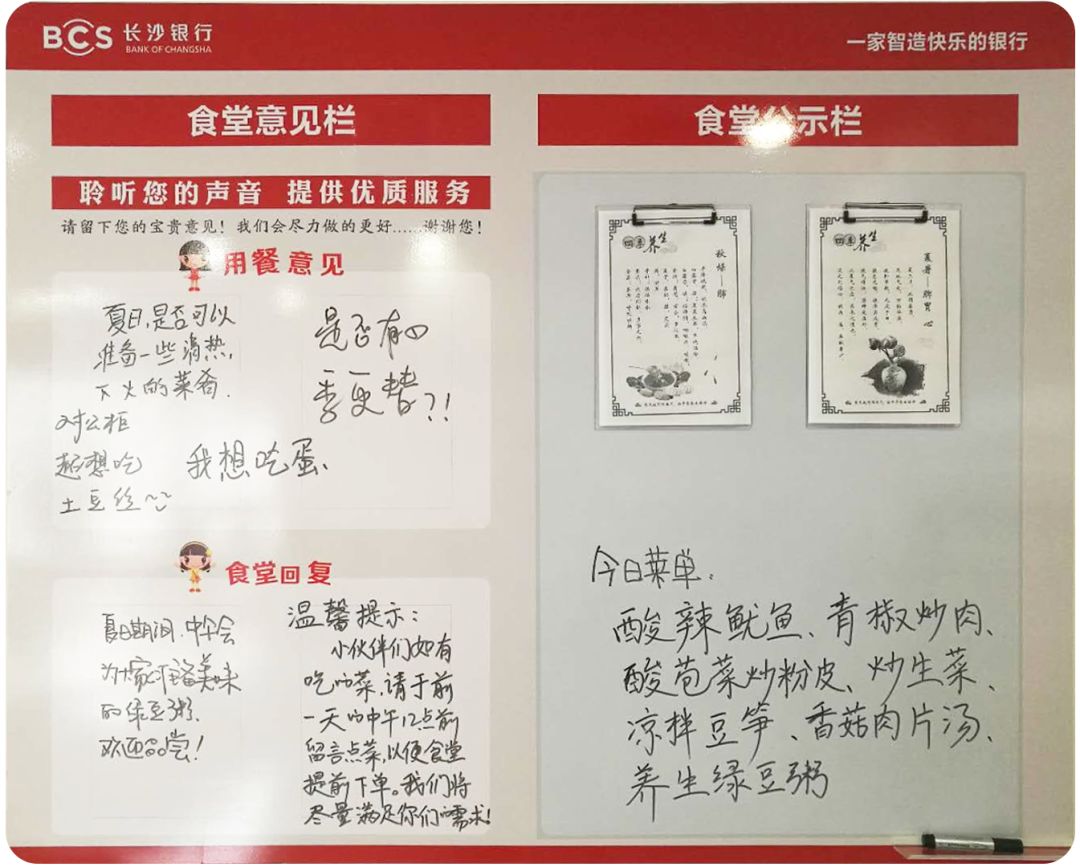 BCS 长沙银行
BANK OF CHANGSHA
一家智造快乐的银行
食堂意见栏
聆听您的声音 提供优质服务
请留下您的宝贵意见！我们会尽力做的更好......谢谢您！
用餐意见
夏日,是否可以
准备一些清热,
下火的菜肴.
对公柜
超想吃
土豆丝~~
我想吃蛋.
是否有四
季更替?!
食堂回复
夏日期间,中午会
为大家准备美味
的绿豆粥.
欢迎品尝!
温馨提示：
小伙伴们如有
吃的菜,请于前
一天的中午12点前
留言点菜,以便食堂
提前下单。我们将
尽量满足你们的需求!
食堂公示栏
四季养生
秋燥—肺
四季养生
夏暑—脾胃 心
今日菜单.
酸辣鱿鱼、青椒炒肉、
酸苞菜炒粉皮、炒生菜、
凉拌豆笋、香菇肉片汤、
养生绿豆粥